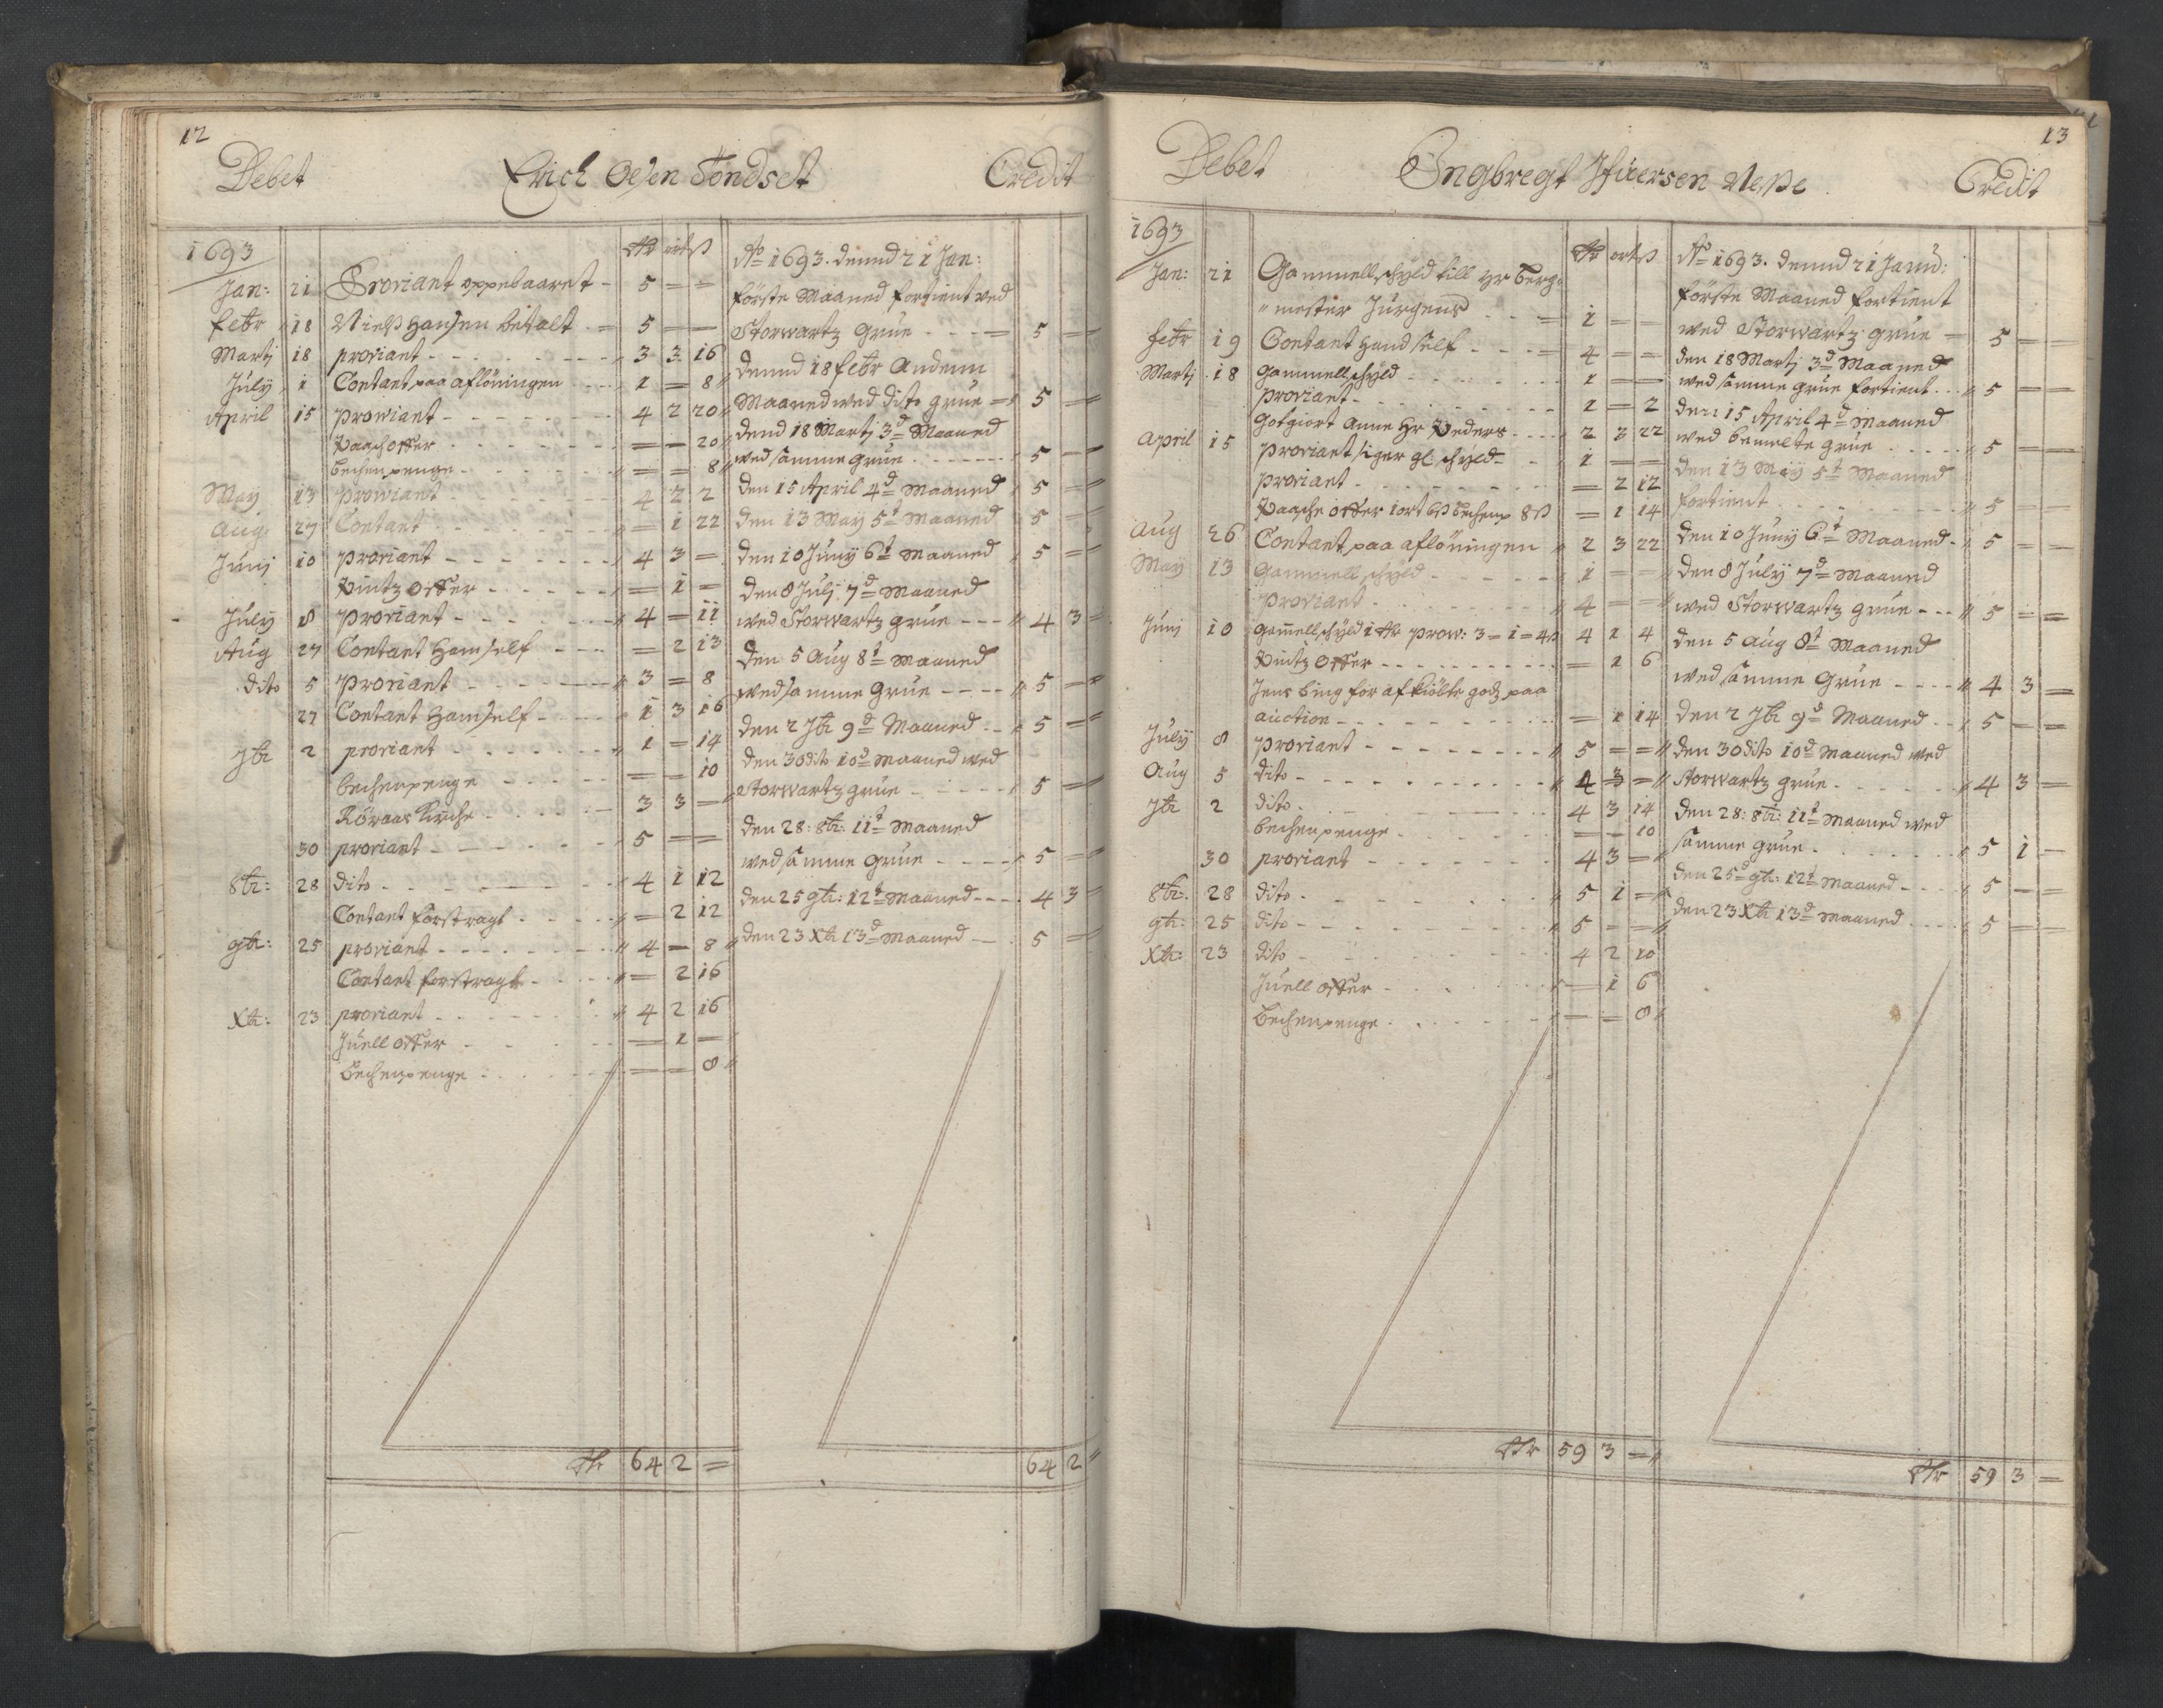 12
Debet Erich Olsen Töndset Credit
1693 Rdr ort ß
Jan: 21 Proviant oppebaaret - 5 = =
Febr 18 Nielß Hansen betalt - 5 = =
Martj 18 proviant - 3 3 16
July 1 Contant paa aflöningen - 1 = 8
April 15 proviant - 4 2 20
Paasch offer - = = 20
bechenpenge - = = 8
May 13 proviant - 4 2 2
Aug 27 Contant - = 1 22
Junj 10 proviant - 4 3 =
Pintz offer - = 1 =
July 8 proviant - 4 = 11
Aug 27 Contant hamself - = 2 13
dito 5 proviant - 3 = 8
27 Contant hamself - 1 3 16
7br 2 proviant - 1 = 14
bechenpenge - = = 10
Röraas Kirche - 3 3 =
30 proviant - 5 = =
8br: 28 dito - 4 1 12
Contant forstragt - = 2 12
9br: 25 proviant - 4 = 8
Contant forstragt - = 2 16
Xbr: 23 proviant - 4 2 16
Juell offer - = 1 =
Bechenpenge - = = 8
Rdr 64 2 =
Ao 1693. dennd 21 Jan:
förste Maaned fortient ved
Storwartz grue - 5 = =
dennd 18 febr Anden
Maaned wed dito grue = 5 = =
dend 18 Martj 3d Maaned
wed samme grue - 5 = =
den 15 April 4d Maaned 5 = =
den 13 May 5t Maaned 5 = =
den 10 Junij 6t Maaned 5 = =
den 8 Julj 7d Maaned
wed Storwartz grue - 4 3 =
den 5 Aug 8t Maaned
wed samme Grue - 5 = =
den 2 7br 9d Maaned - 5 = =
den 30 dito 10d Maaned wed
Storwartz grue - 5 = =
den 28: 8br: 11t Maaned
wed samme Grue - 5 = =
den 25 9br: 12t Maaned - 4 3 =
den 23 Xbr 13d Maaned - 5 = =
64 2 =
13
Debet Ingbregt Ifuersen Neße Credit
1693 Rdr ort ß
Jan: 21 Gammell schyld till hr berg=
" mester Jürgens - 1 = =
febr 19 Contant hand self - 4 = =
Martj 18 Gammell schyld - 1 = =
proviant - 1 = 2
Gotgiort Anne Hr Peders - 2 3 22
April 15 proviant siger gl. schyld - 1 = =
proviant - = 2 12
Paasche offer 1 ort 6ß bechenp 8ß = 1 14
Aug 26 Contant paa aflöningen 2 3 22
May 13 Gammell schyld - 1 = =
proviant - 4 = =
Junj 10 gamell schyld 1 Rdr prow: 3 = 1 = 4ß 4 1 4
Pintz offer - = 1 6
Jens bing för af kiöbte godz paa
auction - = 1 14
July 8 proviant - 5 = =
Aug 5 dito - 4 3 =
7br 2 dito - 4 3 14
bechenpenge - = = 10
30 proviant - 4 3 =
8br: 28 dito - 5 1 =
9br: 25 dito - 5 = =
Xbr: 23 dito - 4 2 10
Juell offer - = 1 6
Bechenpenge - = = 8
Rdr 59 3 =
Ao 1693. dennd 21 Janu:
förste Maaned fortient
wed Storwartz grue = 5 = =
den 18 Martj 3d Maaned
wed samme grue fortient - 5 = =
den 15 April 4d Maaned
wed bemelte grue - 5 = =
den 13 Maij 5t Maaned
fortient - 5 = =
den 10 Junij 6t Maaned - 5 = =
den 8 Julij 7d Maaned
wed Storwartz grue - 5 = =
den 5 Aug 8t Maaned
wed samme Grue - 4 3 =
den 2 7br 9d Maaned - 5 = =
den 30 dito 10d Maaned wed
Storwartz grue - 4 3 =
den 28: 8br: 11t Maaned wed
samme grue - 5 1 =
den 25d 9br: 12t Maaned - 5 = =
den 23 Xbr 13d Maaned - 5 = =
Rdr 59 3 =